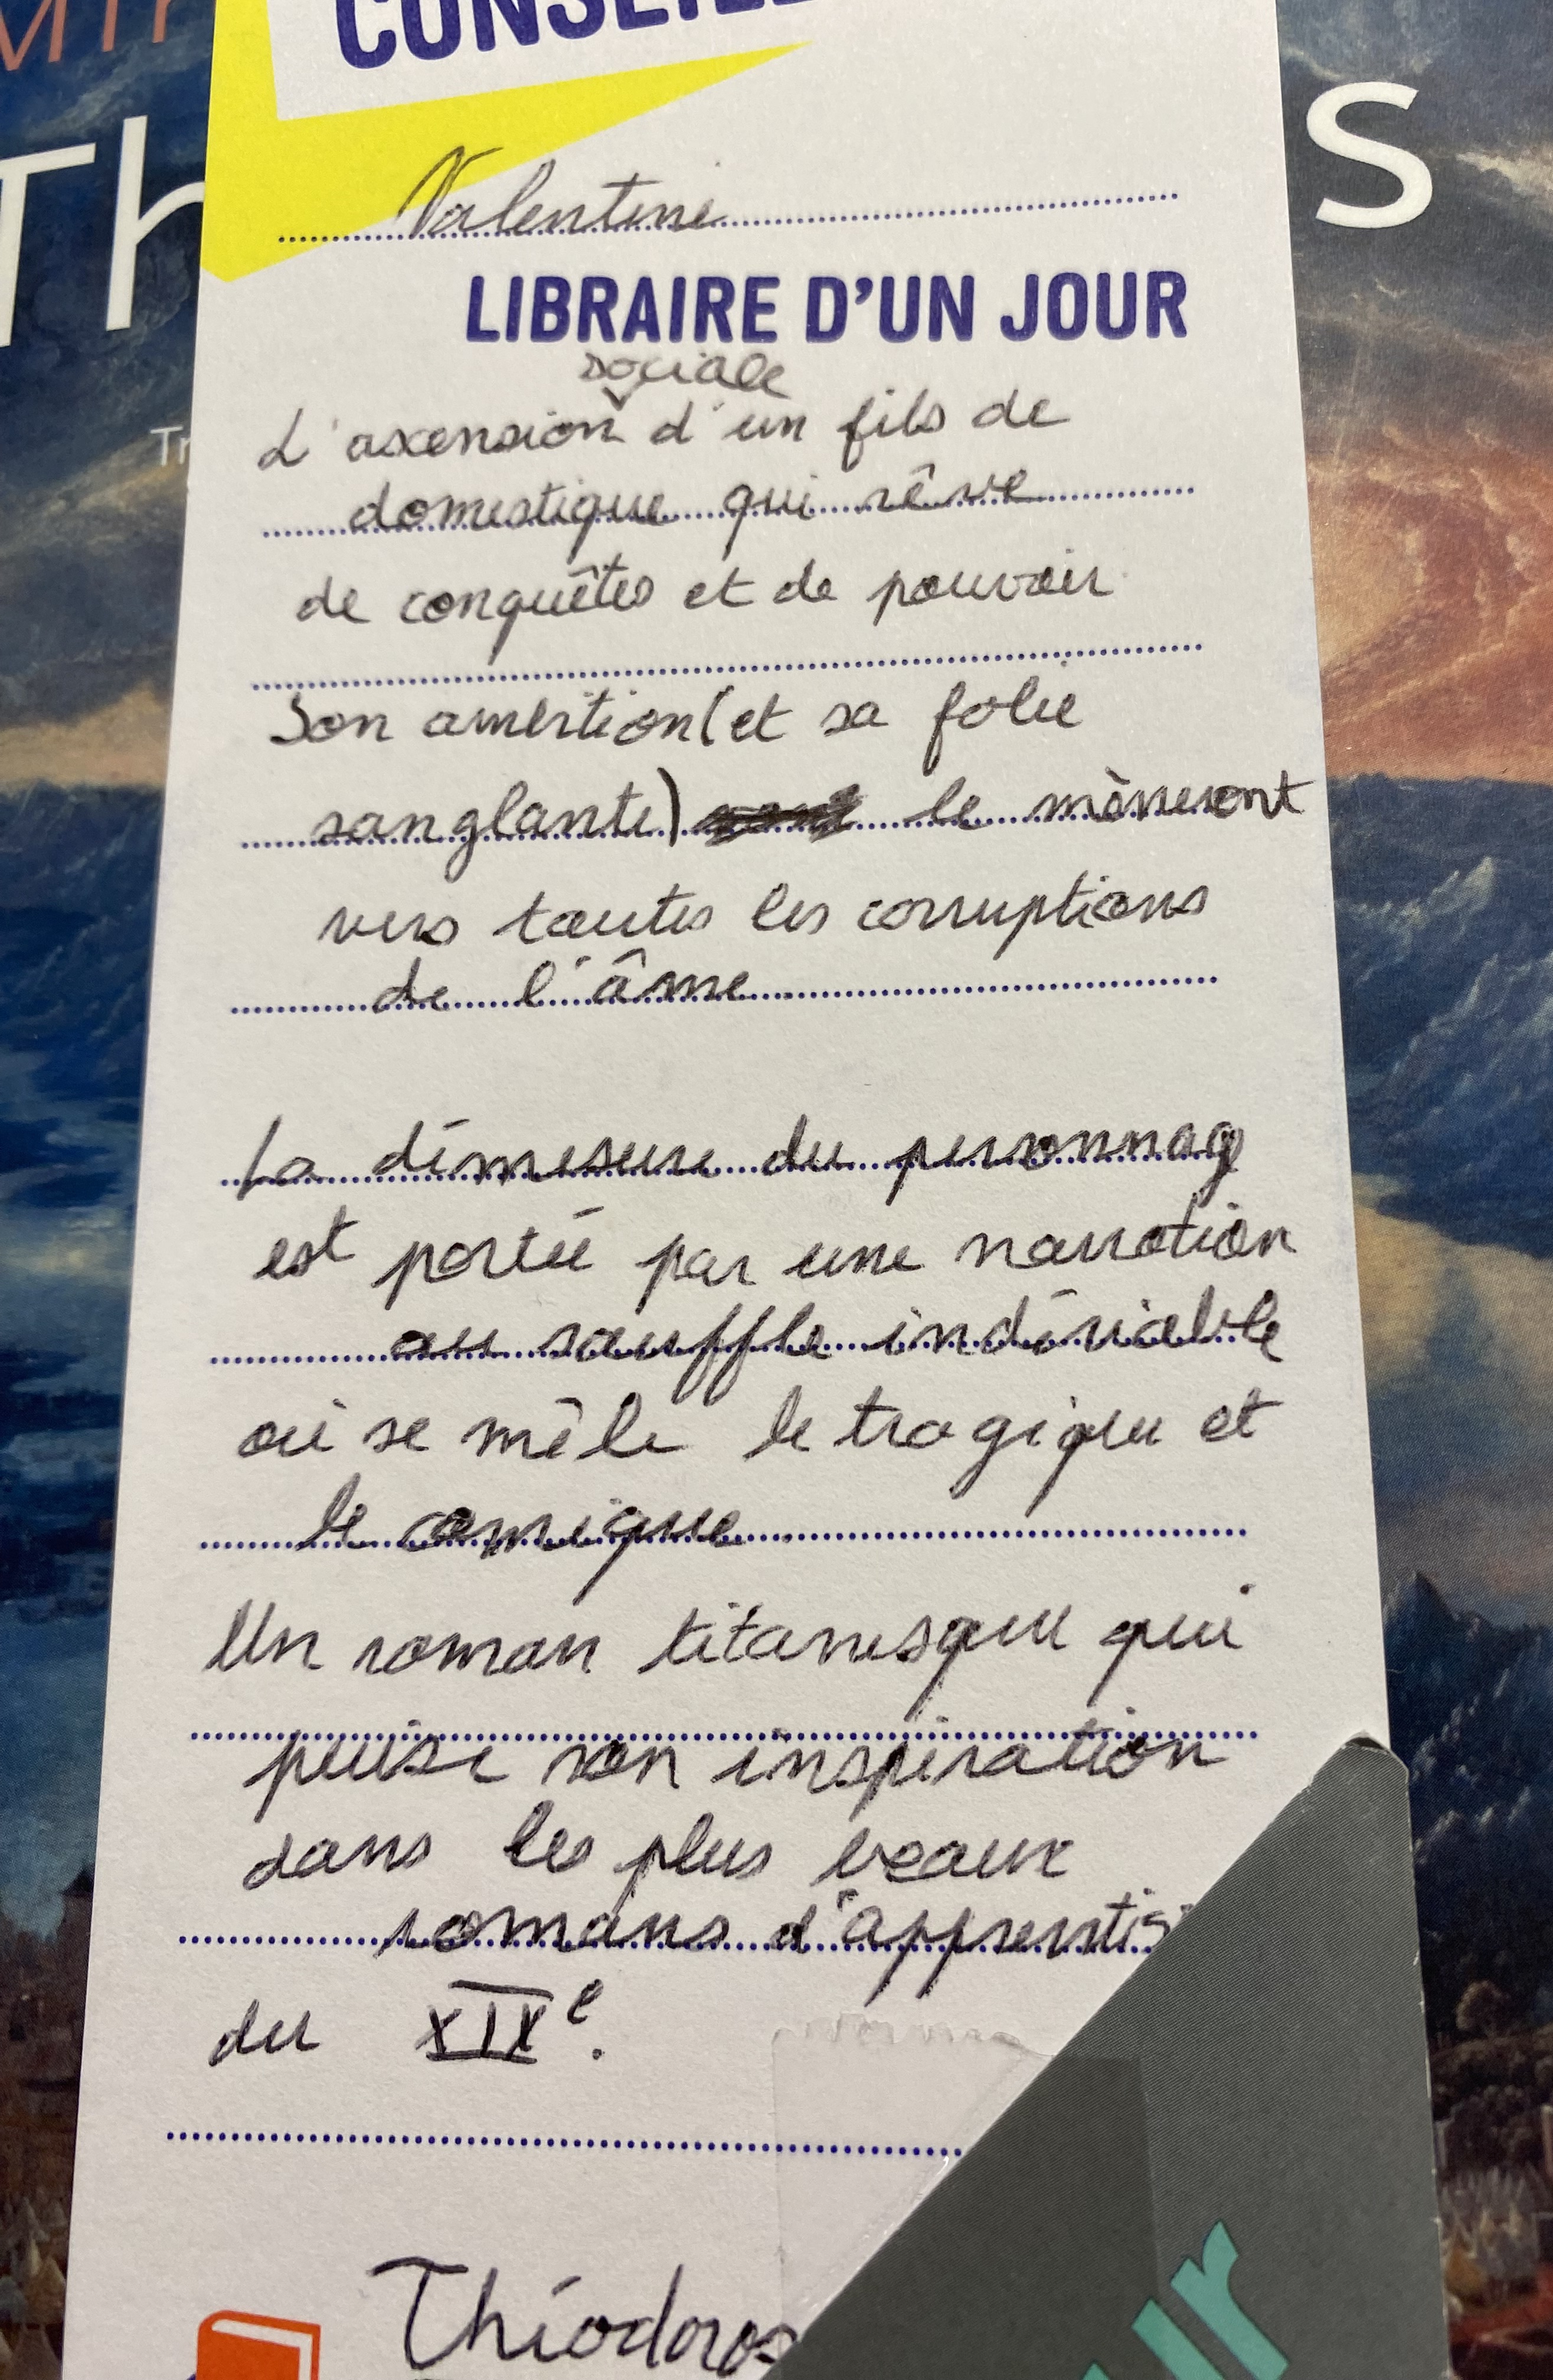 CONSEILL
Valentine
LIBRAIRE D'UN JOUR
sociale
L'axension d'un fils de
domestique qui rêve
de conquêtes et de pouvoir
Son ambition (et sa folie
sanglante) le mèneront
vers toutes les corruptions
de l'âme
La démesure du personnag
est portée par une narration
au souffle indéniable
où se mêle le tragique et
le comique
Un roman titanesque qui
puise son inspiration
dans les plus beaux
romans d'apprentis
du XIXe.
Théodoros
Th
S
Tr
ur